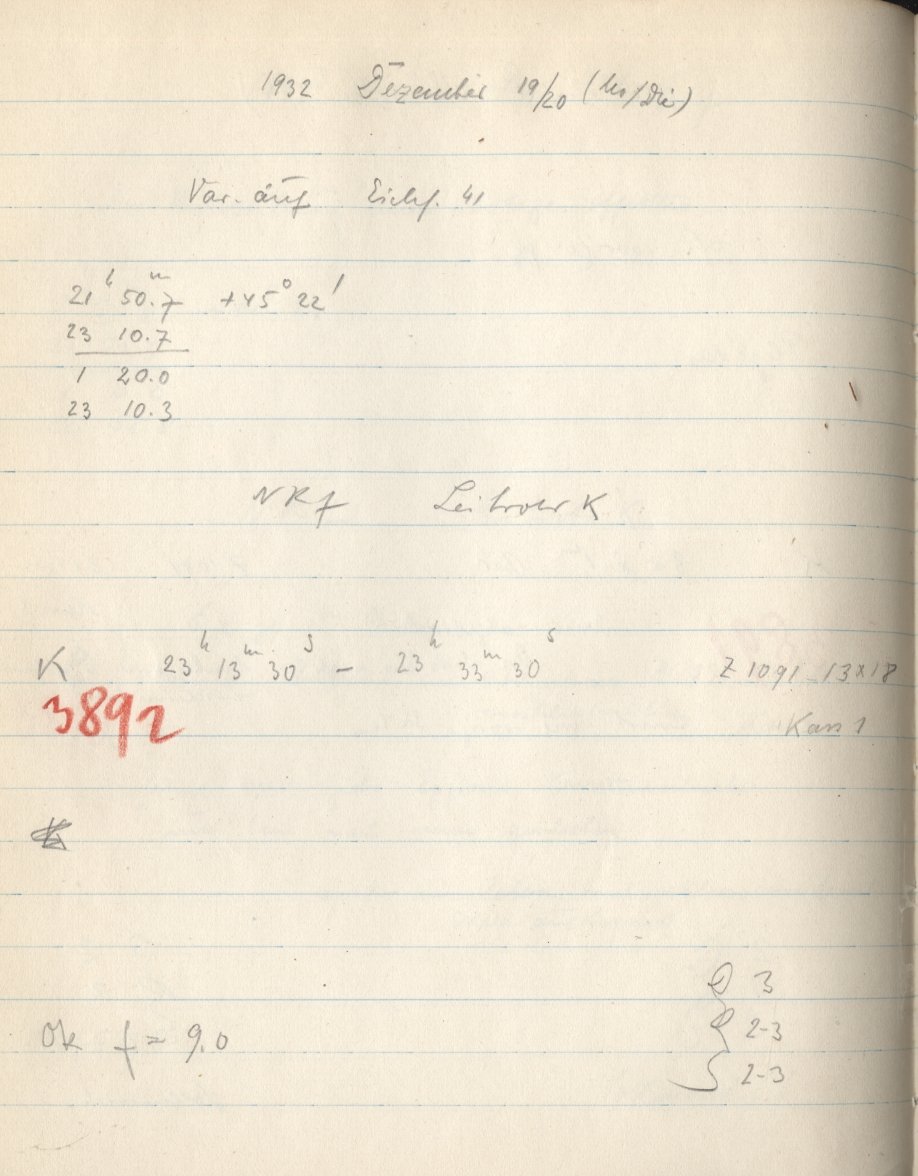 1932 Dezember 19/20 (Mo/Die)
Var. auf Eichf. 41
21ʰ 50.7ᵐ +45° 22'
23 10.7
1 20.0
23 10.3
NRf Leitrohr K
K 23ʰ 13ᵐ 30ˢ – 23ʰ 33ᵐ 30ˢ Z 1091 13x18
3892 Kass 1
3
Ok f = 9.0 2-3
2-3